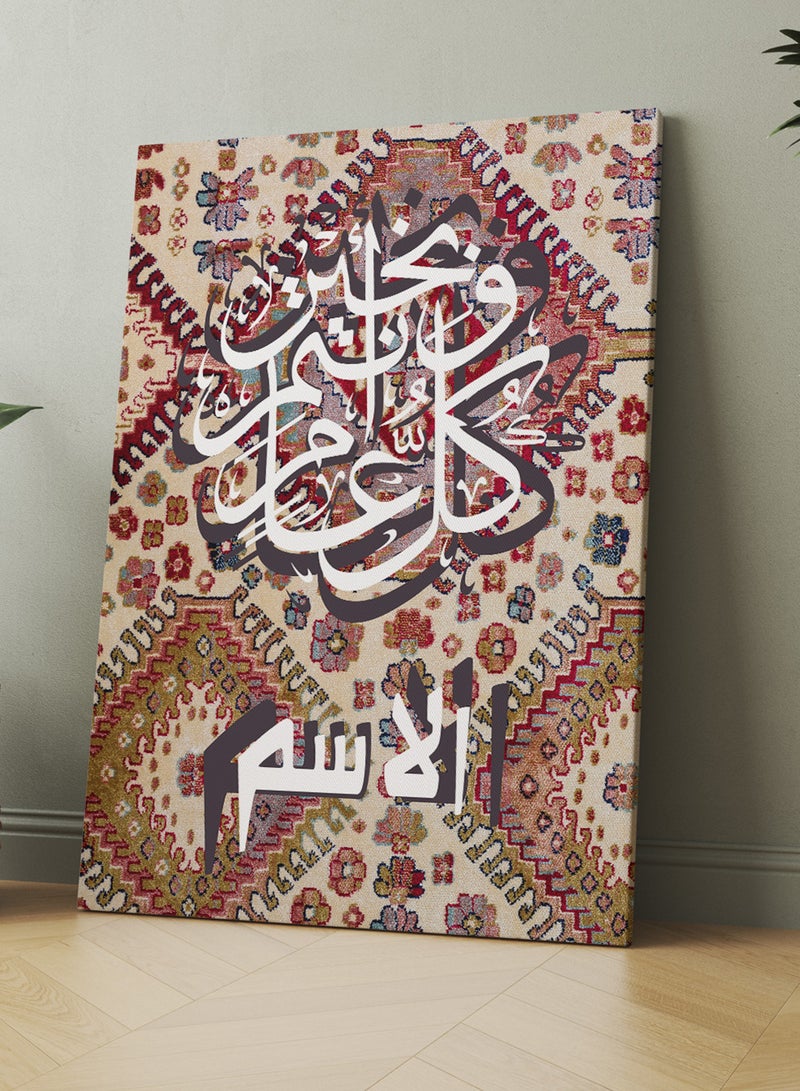 كُلُّ عَامٍ وأنتم بخير
الاسم